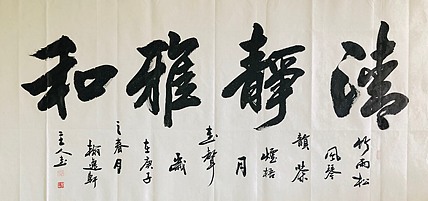 清靜雅和
竹雨松
風琴
韻茶
煙梧
月
書聲
歲
在庚子
之春月
翰逸軒
主人